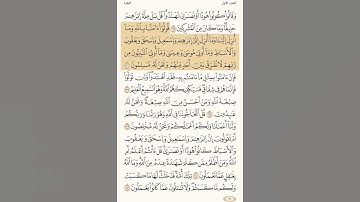 الجزء الأول البقرة
وَقَالُوا۟ كُونُوا۟ هُودًا أَوْ نَصَٰرَىٰ تَهْتَدُوا۟ قُلْ بَلْ مِلَّةَ إِبْرَٰهِۦمَ
حَنِيفًا وَمَا كَانَ مِنَ ٱلْمُشْرِكِينَ قُولُوٓا۟ ءَامَنَّا بِٱللَّهِ وَمَآ
أُنزِلَ إِلَيْنَا وَمَآ أُنزِلَ إِلَىٰٓ إِبْرَٰهِۦمَ وَإِسْمَٰعِيلَ وَإِسْحَٰقَ وَيَعْقُوبَ
وَٱلْأَسْبَاطِ وَمَآ أُوتِىَ مُوسَىٰ وَعِيسَىٰ وَمَآ أُوتِىَ ٱلنَّبِيُّونَ مِن
رَّبِّهِمْ لَا نُفَرِّقُ بَيْنَ أَحَدٍ مِّنْهُمْ وَنَحْنُ لَهُۥ مُسْلِمُونَ
فَإِنْ ءَامَنُوا۟ بِمِثْلِ مَآ ءَامَنتُم بِهِۦ فَقَدِ ٱهْتَدَوا۟ وَّإِن تَوَلَّوْا۟
فَإِنَّمَا هُمْ فِى شِقَاقٍ فَسَيَكْفِيكَهُمُ ٱللَّهُ وَهُوَ ٱلسَّمِيعُ ٱلْعَلِيمُ
صِبْغَةَ ٱللَّهِ وَمَنْ أَحْسَنُ مِنَ ٱللَّهِ صِبْغَةً وَنَحْنُ لَهُۥ
عَٰبِدُونَ قُلْ أَتُحَآجُّونَنَا فِى ٱللَّهِ وَهُوَ رَبُّنَا وَرَبُّكُمْ
وَلَنَآ أَعْمَٰلُنَا وَلَكُمْ أَعْمَٰلُكُمْ وَنَحْنُ لَهُۥ مُخْلِصُونَ
أَمْ تَقُولُونَ إِنَّ إِبْرَٰهِۦمَ وَإِسْمَٰعِيلَ وَإِسْحَٰقَ وَيَعْقُوبَ
وَٱلْأَسْبَاطَ كَانُوا۟ هُودًا أَوْ نَصَٰرَىٰ قُلْ ءَأَنتُمْ أَعْلَمُ أَمِ
ٱللَّهُ وَمَنْ أَظْلَمُ مِمَّن كَتَمَ شَهَٰدَةً عِندَهُۥ مِنَ ٱللَّهِ وَمَا ٱللَّهُ
بِغَٰفِلٍ عَمَّا تَعْمَلُونَ تِلْكَ أُمَّةٌ قَدْ خَلَتْ لَهَا مَا كَسَبَتْ
وَلَكُم مَّا كَسَبْتُمْ وَلَا تُسْـَٔلُونَ عَمَّا كَانُوا۟ يَعْمَلُونَ